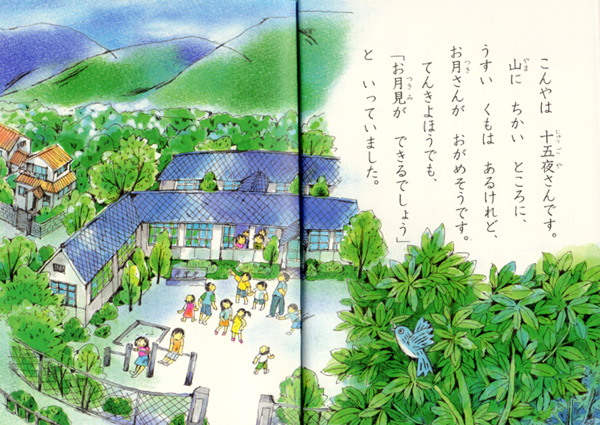 こんやは　十五夜さんです。
山に　ちかい　ところに、
うすい　くもは　あるけれど、
お月さんが　おがめそうです。
てんきよほうでも、
「お月見が　できるでしょう」
と　いっていました。